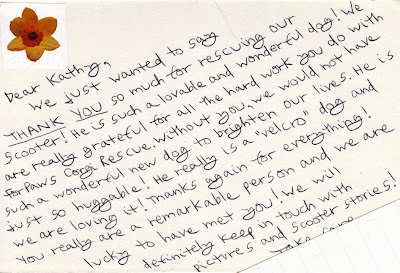 Dear Kathy,
We just wanted to say
THANK YOU so much for rescuing our
Scooter! He is such a lovable and wonderful dog! We
are really grateful for all the hard work you do with
ForPaws Corgi Rescue. Without you, we would not have
such a wonderful new dog to brighten our lives. He is
just so huggable! He really is a "velcro" dog and
we are loving it! Thanks again for everything!
You really are a remarkable person and we are
lucky to have met you! We will
definitely keep in touch with
pictures and scooter stories!
Take